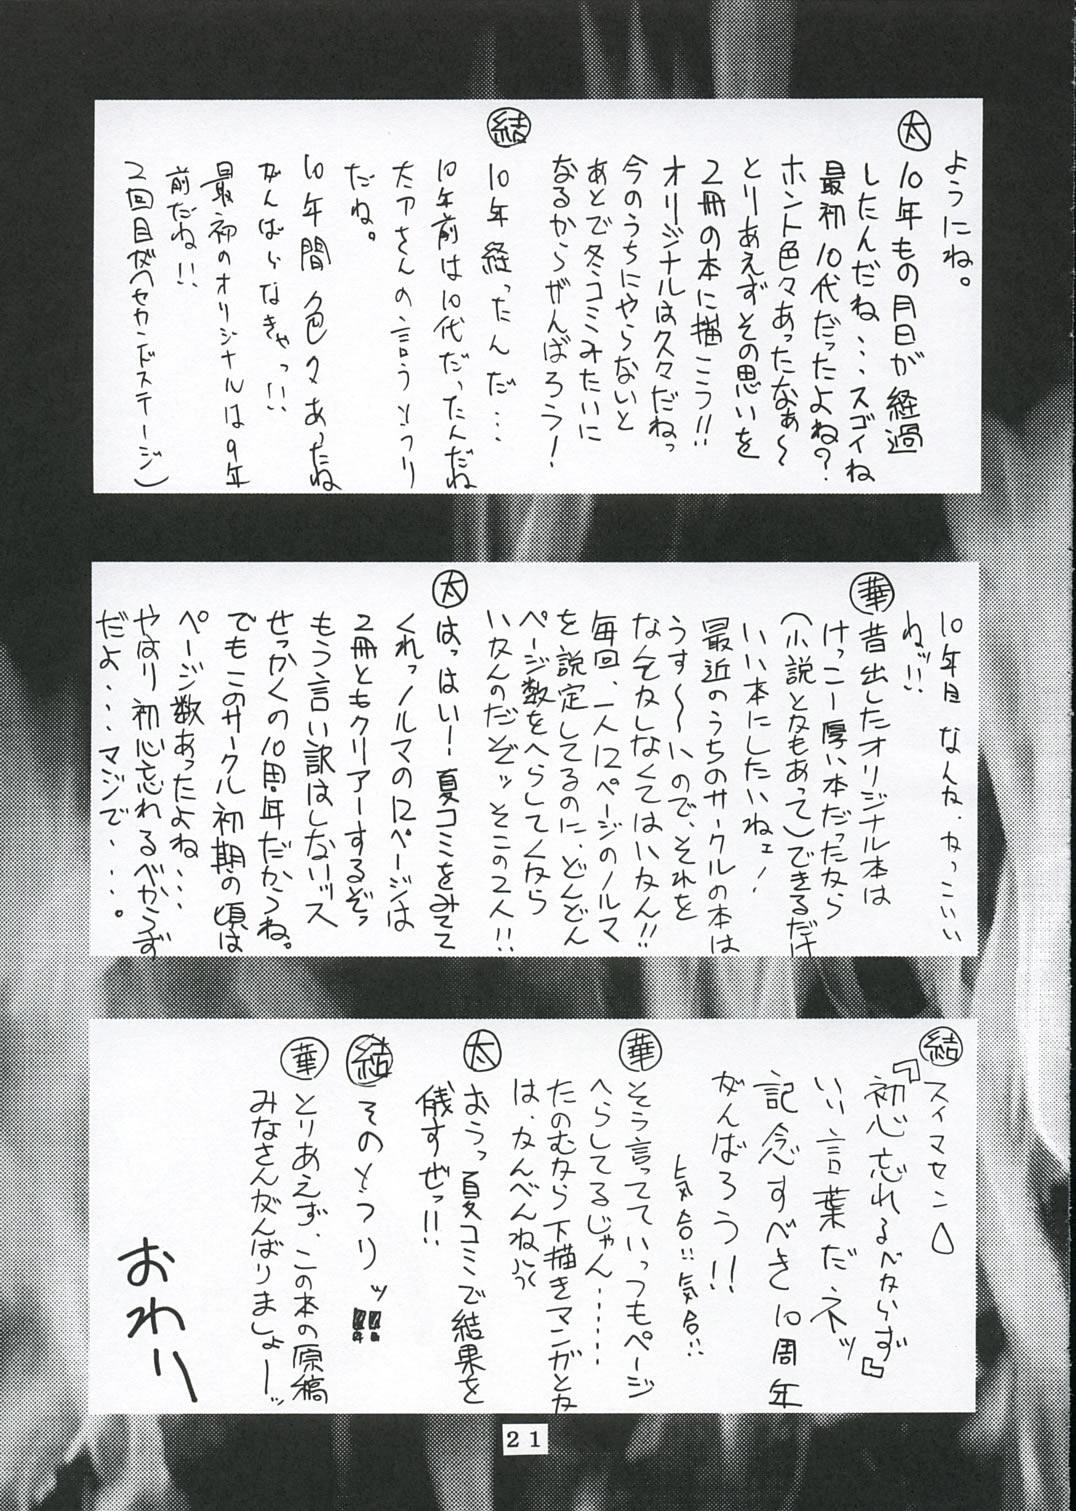 ようにね。
太
10年もの月日が経過
したんだね...スゴイね
最初10代だったよね?
ホント色々あったなぁ〜
とりあえずその思いを
2冊の本に描こう!!
オリジナルは久々だねっ
今のうちにやらないと
あとで冬コミみたいに
なるからがんばろう!
結
10年経ったんだ...
10年前は10代だったんだね
太アさんの言うとうり
だね。
10年間色々あったね
がんばらなきゃっ!!
最初のオリジナルは9年
前だね!!
2回目が(セカンドステージ)
10年目なんか、かっこいい
ねッ!!
華
昔出したオリジナル本は
けっこー厚い本だったから
(小説とかもあって)できるだけ
いい本にしたいねェ!
最近のうちのサークルの本は
うす〜〜いので、それを
なんとかしなくてはいかん!!
毎回、一人12ページのノルマ
を説定してるのに、どんどん
ページ数をへらしてくから
いかんのだぞッそこの2人!!
太
はっはい!夏コミをみてて
くれっノルマの12ページは
2冊ともクリアーするぞっ
もう言い訳はしないッス
せっかくの10周年だからね。
でもこのサークル初期の頃は
ページ数あったよね...
やはり初心忘れるべからず
だよ...マジで...。
結
スイマセン
『初心忘れるべからず』
いい言葉だネッ
記念すべき10周年
がんばろう!!
気合!!気合!!
華
そう言ってていっつもページ
へらしてるじゃん......
たのむから下描きマンガとか
は、かんべんね
太
おうっ夏コミで結果を
儀すぜっ!!
結
そのとうりッ!!
華
とりあえず、この本の原稿
みなさんがんばりましょーッ
おわり
21